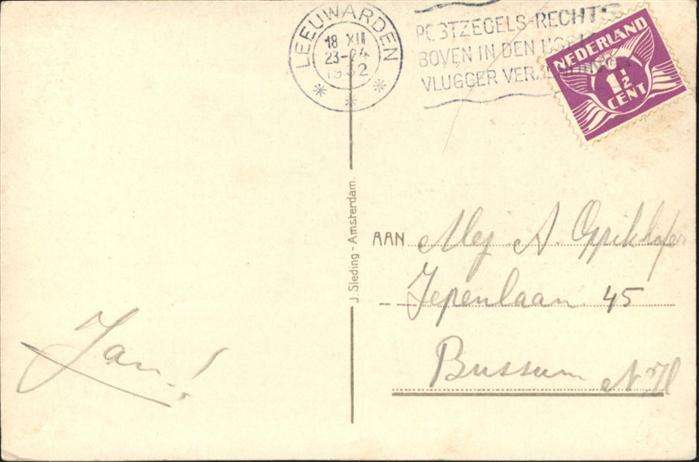 LEEUWARDEN
18 XII
23-24
1932
POSTZEGELS RECHTS
BOVEN IN DEN HOEK
VLUGGER
NEDERLAND
1½
CENT
J. Sleding - Amsterdam.
AAN Mej A. Oppikhofer
Iepenlaan 45
Bussum N.H
Jan!